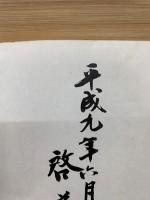 平成九年六月
啓